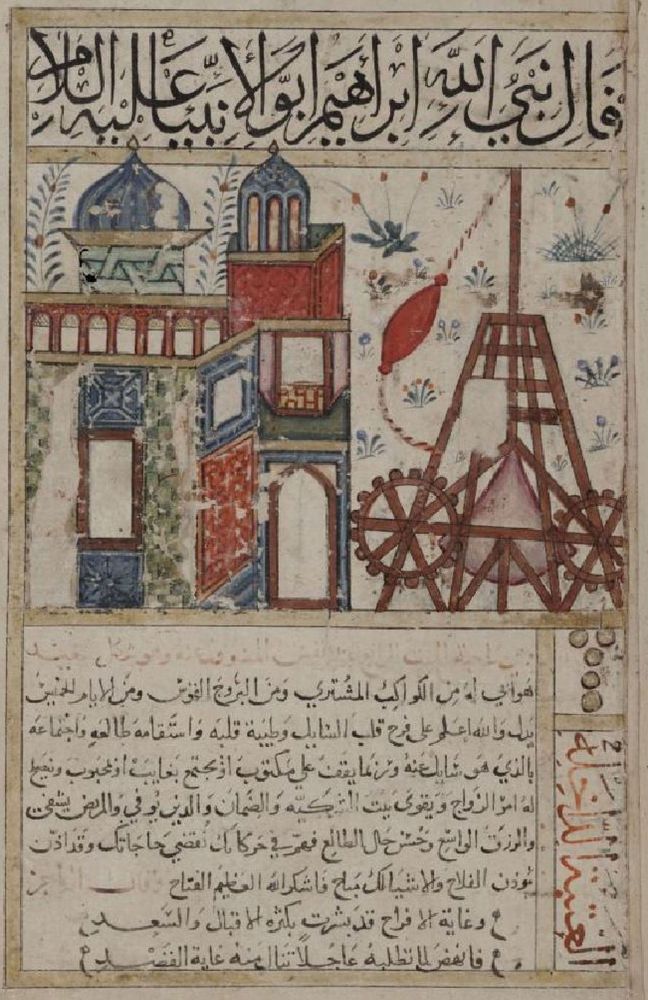 قال نبي الله ابراهيم ابو الانبيا عليه السلام
هوائي له من الكواكب المشتري ومن البروج القوس ومن الايام الخميس
يدل والله اعلم على فرح قلب السايل وطيبة قلبه واستقامة طالعه واجتماعه
بالذي هو سايل عنه وربما يقف على مكتوب او يجتمع بغايب او محبوب ويصح
له امر الزواج ويقوى بيت الشركة والضمان والدين يوفي والمريض يشفى
والرزق الواسع وحسن حال الطالع في حركاتك تقضى حاجاتك وقد اذن
بوذن الفلاح والاشيا لك مباح فاشكر الله العظيم الفتاح
وغاية الافراح قد بشرت بكثرة الاقبال والسعد
فانهض لما تطلبه عاجلا تنال منه غاية القصد
العتبة الداخلة